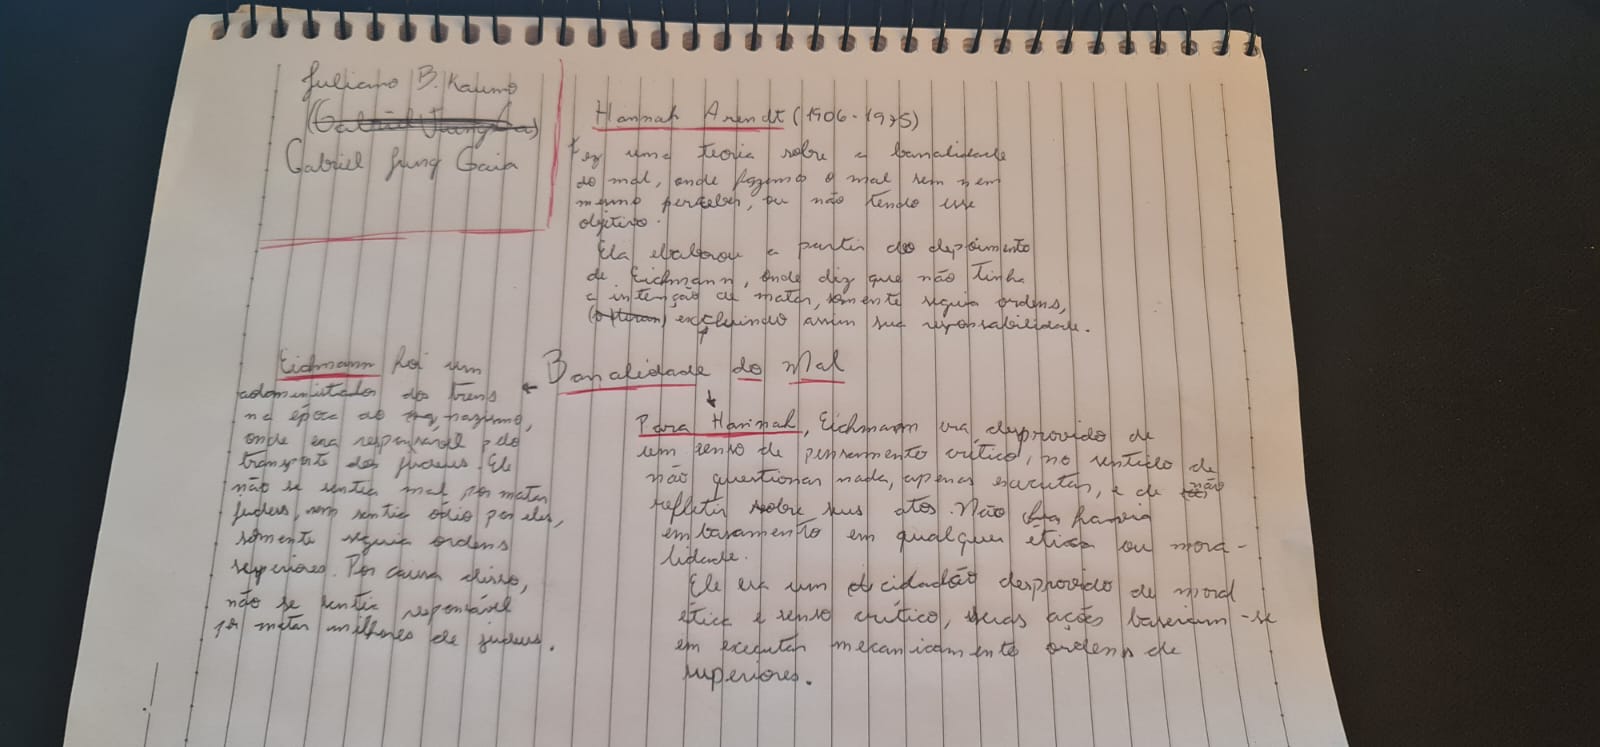 Juliano B. Kaumo
Gabriel Jung Gaia
Hannah Arendt (1906-1975)
Fez uma teoria sobre a banalidade
do mal, onde fazemos o mal sem nem
mesmo perceber, ou não tendo esse
objetivo.
Ela elaborou a partir do depoimento
de Eichmann, onde diz que não tinha
a intenção de matar, somente seguia ordens,
excluindo assim sua responsabilidade.
Banalidade do Mal
Eichmann foi um
administrador dos trens
na época do nazismo,
onde era responsável pelo
transporte dos judeus. Ele
não se sentia mal por matar
judeus, nem sentia ódio por eles,
somente seguia ordens
superiores. Por causa disso,
não se sentia responsável
por matar milhares de judeus.
Para Hannah, Eichmann era desprovido de
um senso de pensamento crítico, no sentido de
não questionar nada, apenas executar, e de não
refletir sobre seus atos. Não havia
embasamento em qualquer ética ou mora-
lidade.
Ele era um cidadão desprovido de moral
ética e senso crítico, suas ações baseiam-se
em executar mecanicamente ordens de
superiores.